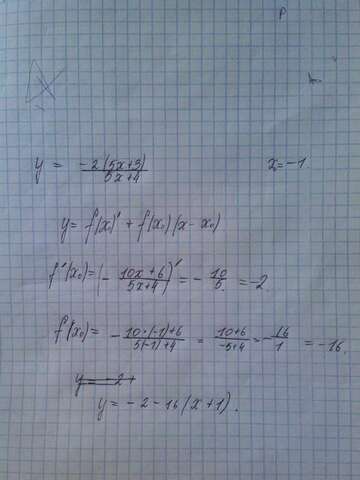 y = -2(5x+3)/5x+4 x=-1.
y = f(x)' + f(x₀)(x-x₀)
f'(x₀)=(-10x+6/5x+4)' = -10/5 = -2
f'(x₀) = -10·(-1)+6/5(-1)+4 = 10+6/-5+4 = -16/1 = -16.
y = -2+
y = -2-16(x+1).